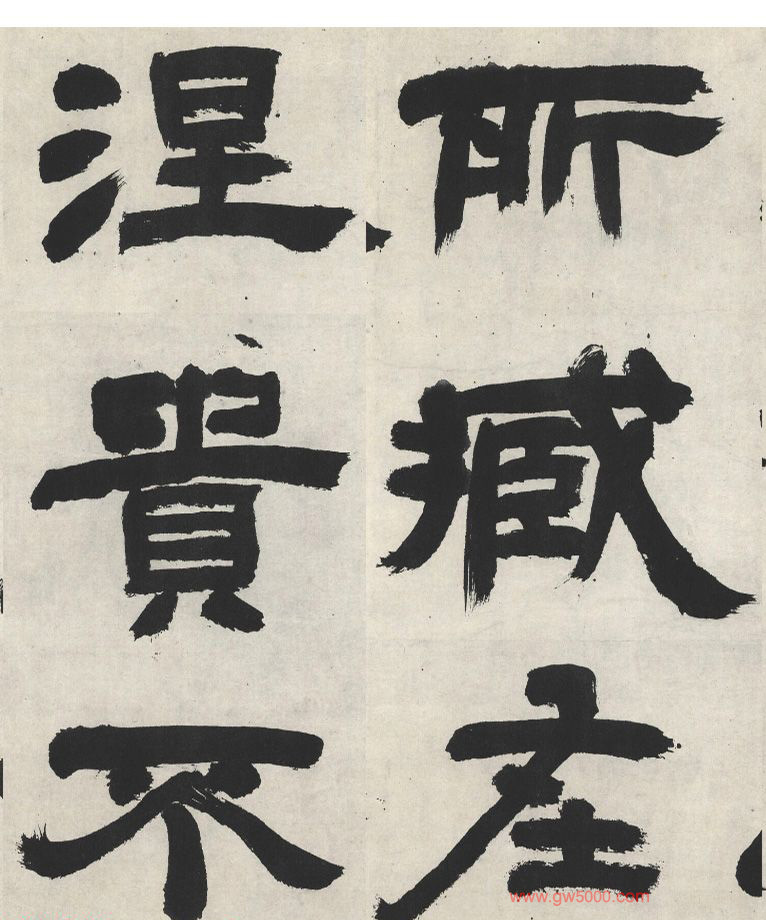 所臧在
涅貴不
www.gw5000.com